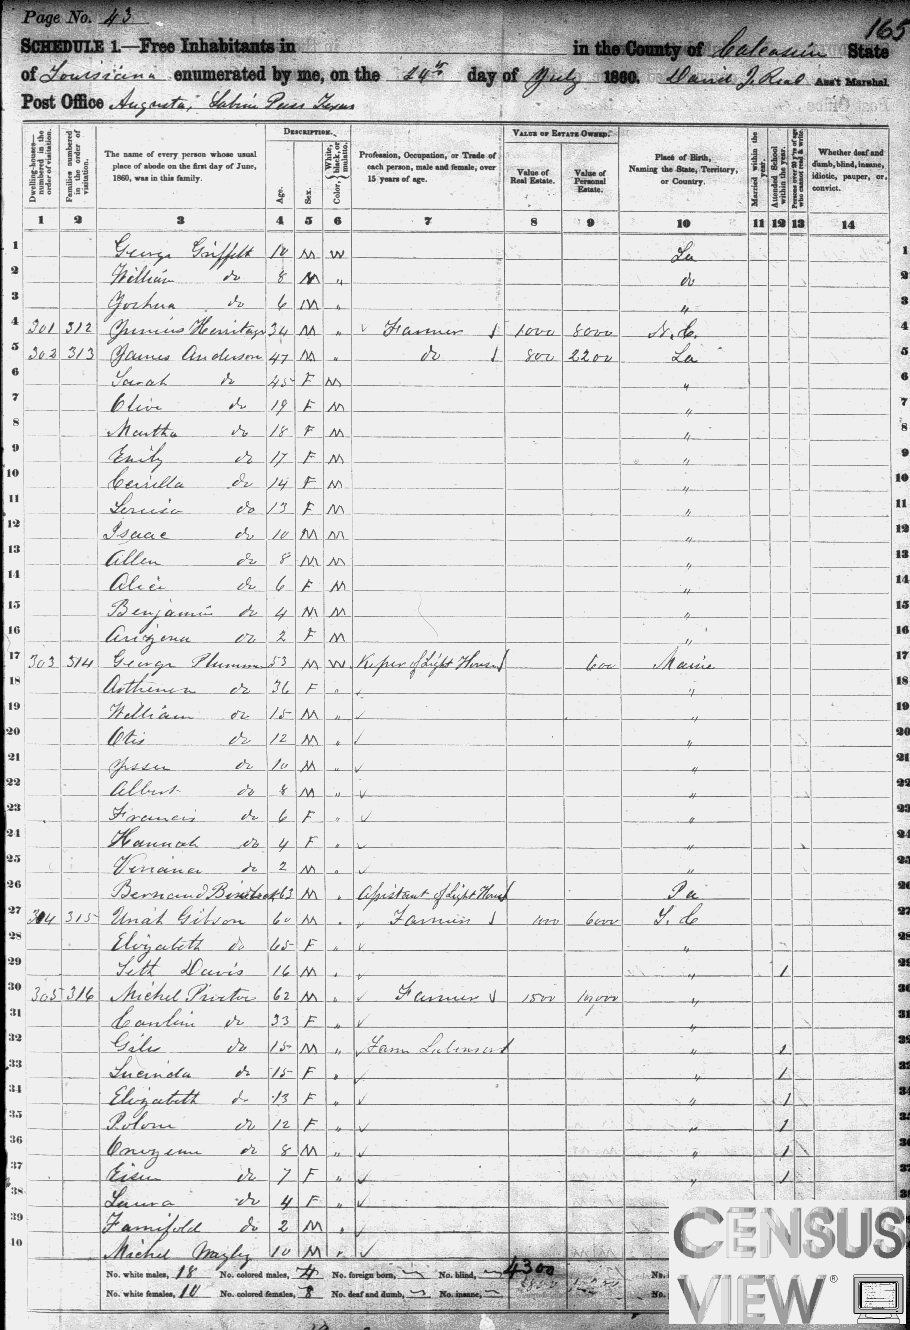 Page No. 43
165
SCHEDULE 1.—Free Inhabitants in in the County of Calcasieu State
of Louisiana enumerated by me, on the 14th day of July 1860. David J. Read Ass't Marshal
Post Office Augusta, Sabine Pass Texas
Dwelling-houses—numbered in the order of visitation.
Families numbered in the order of visitation.
The name of every person whose usual place of abode on the first day of June, 1860, was in this family.
DESCRIPTION.
Age.
Sex.
Color, White, black, or mulatto.
Profession, Occupation, or Trade of each person, male and female, over 15 years of age.
VALUE OF ESTATE OWNED.
Value of Real Estate.
Value of Personal Estate.
Place of Birth, Naming the State, Territory, or Country.
Married within the year.
Attended School within the year.
Persons over 20 y'rs of age who cannot read & write.
Whether deaf and dumb, blind, insane, idiotic, pauper, or, convict.
1 2 3 4 5 6 7 8 9 10 11 12 13 14
1 George Griffith 10 M W La 1
2 William do 8 M " do 2
3 Joshua do 6 M " " 3
4 301 312 Junius Herritage 34 M " Farmer 1000 8000 N.C. 4
5 302 313 James Anderson 47 M " do 800 2200 La 5
6 Sarah do 45 F M " 6
7 Olive do 19 F M " 7
8 Martha do 18 F M " 8
9 Emily do 17 F M " 9
10 do 14 F M " 10
11 Louisa do 13 F M " 11
12 Isaac do 10 M M " 12
13 Allen do 8 M M " 13
14 Alice do 6 F M " 14
15 Benjamin do 4 M M " 15
16 Arizona do 2 F M " 16
17 303 314 George Plummer 53 M W Keper of Light House 600 Maine 17
18 do 36 F " " 18
19 William do 15 M " " 19
20 Otis do 12 M " " 20
21 do 10 M " " 21
22 Albert do 8 M " " 22
23 Francis do 6 F " " 23
24 Hannah do 4 F " " 24
25 do 2 M " " 25
26 Bernard 63 M " Assistant of Light House Pa 26
27 304 315 Uriah Gibson 60 M " Farmer 1000 6000 S.C. 27
28 Elizabeth do 65 F " " 28
29 Seth Davis 16 M " " 1 29
30 305 316 Michel Proctor 62 M " Farmer 1500 10,000 " 30
31 Caroline do 33 F " " 31
32 Giles do 15 M " Farm Laborer " 1 32
33 Lucinda do 15 F " " 1 33
34 Elizabeth do 13 F " " 1 34
35 do 12 F " " 1 35
36 do 8 M " " 1 36
37 do 7 F " " 1 37
38 Laura do 4 F " 38
39 do 2 M "
10 Michel 10 M "
No. white males, 18 No. colored males, 4 No. foreign born, No. blind, 4300
No. white females, 10 No. colored females, 8 No. deaf and dumb, No. insane,
CENSUS VIEW®